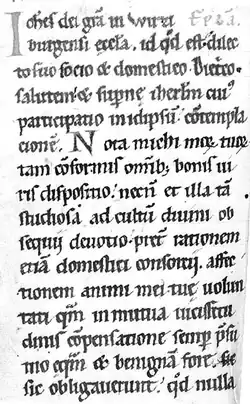 Ioh̅es dei gr̅a in wirzi
burgensi eccl̅a. id qd̅ est dilec
to suo socio & domestico. Dietrico.
salutem & sup̅ne ih̅erlm̅ cui9
participatio in idipsu̅ co̅templa
cione̅. Nota michi mor̅ tuor̅
tam co̅formis om̅ib; bonis ui
ris dispositio. necn̅ et illa ta̅
studiosa ad cultu̅ diuini ob
sequij deuotio. pret̅ rationem
etia̅ domestici consortij. affec
tionem animi mei tue uolun
tati qm̅ in mutua uicissitu
dinis co̅pensatione semp̅ p̅su
mo equ̅m & benigna̅ fore.
sic obligauerunt. qd̅ nulla